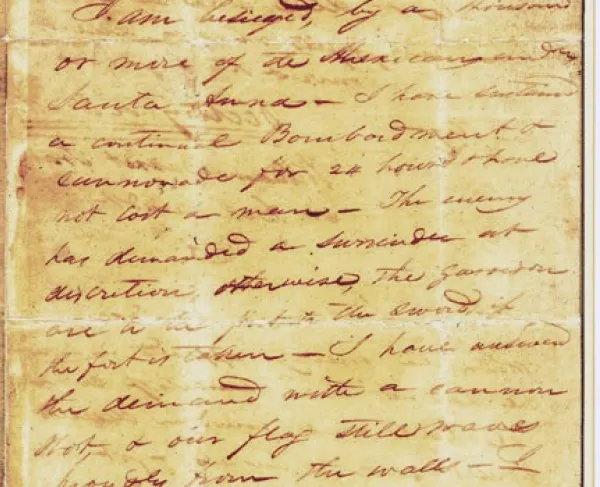 I am besieged, by a thousand
or more of the Mexicans under
Santa Anna – I have sustained
a continual Bombardment &
cannonade for 24 hours & have
not lost a man – The enemy
has demanded a surrender at
discretion, otherwise, the garrison
are to be put to the sword, if
the fort is taken – I have answered
the demand with a cannon
shot, & our flag still waves
proudly from the walls – I